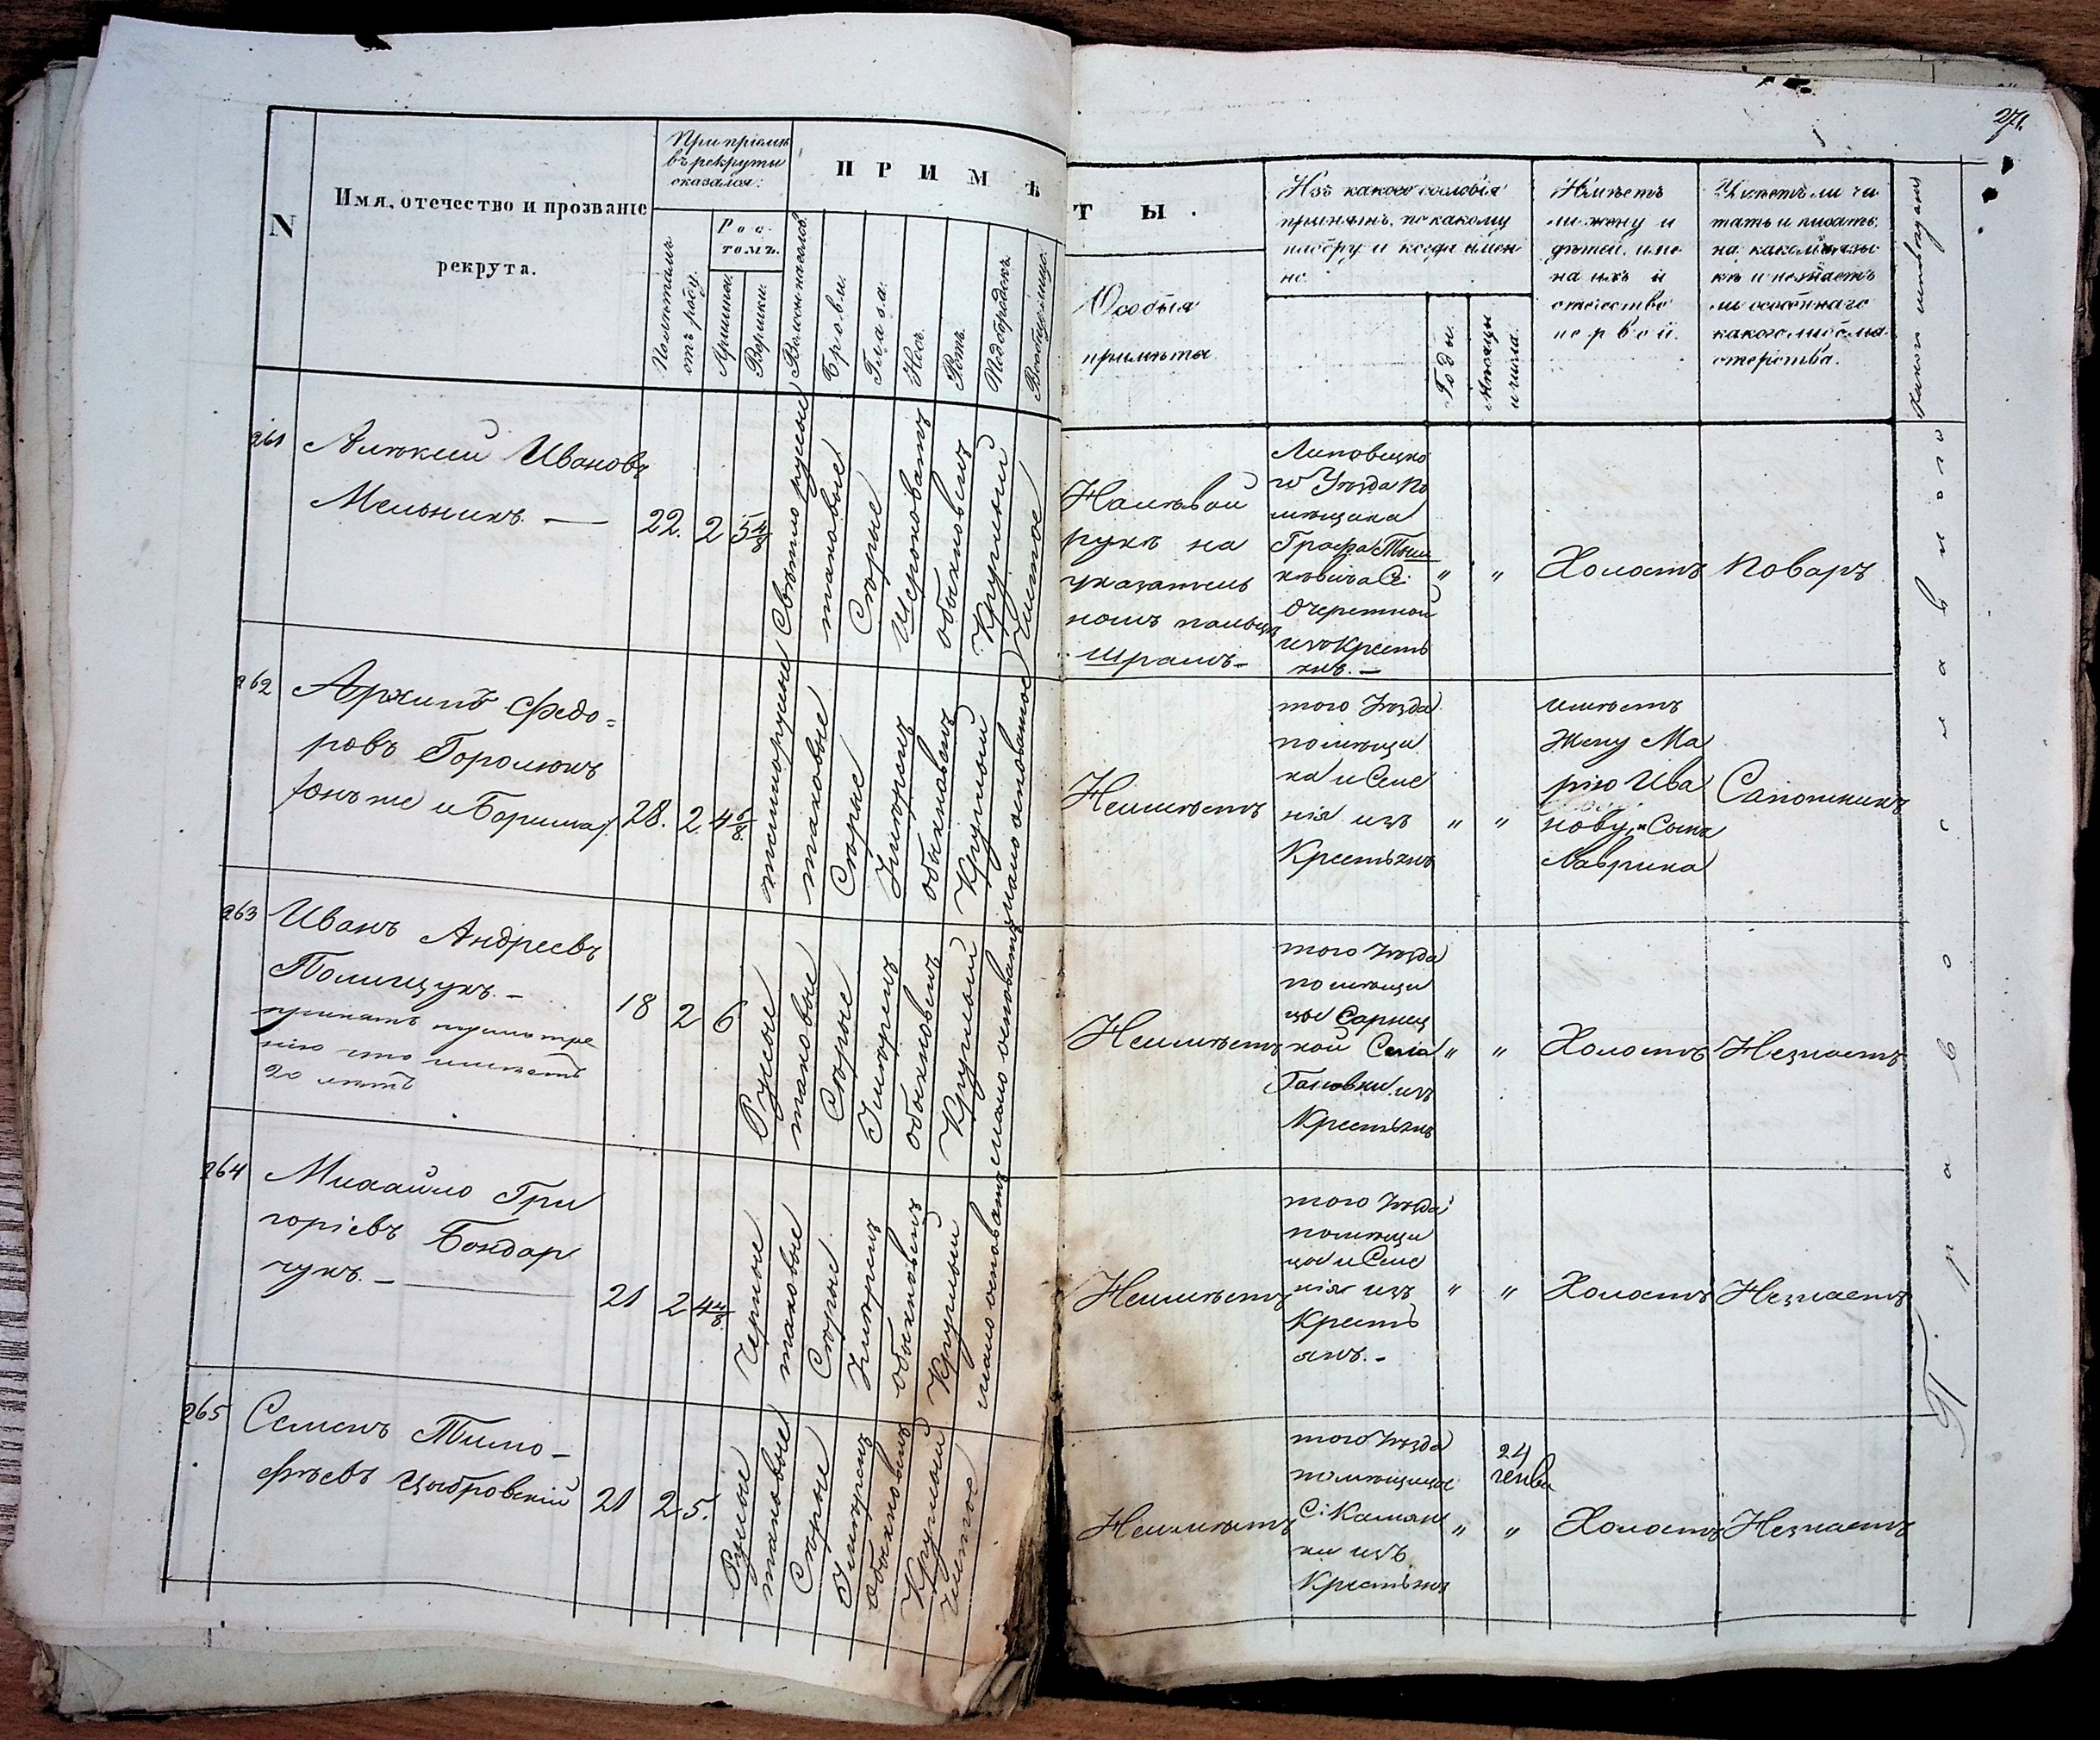 271.
N
Имя, отечество и прозваніе
рекрута.
При пріемѣ
въ рекруты
оказался:
Полѣтамъ
отъ роду.
Рос-
томъ.
Аршины.
Вершки.
ПРИМѢТЫ.
Волосы на головѣ
Брови.
Глаза.
Носъ.
Ротъ.
Подбородокъ.
Вообще лицо.
Особыя
примѣты
Изъ какого сословія
принятъ, по какому
набору и когда имен
но.
Годы.
Мѣсяцы
и числа.
Имѣетъ
ли жену и
дѣтей, име
на ихъ и
отечество
первой.
Умѣетъ ли чи
тать и писать,
на какомъ язы
кѣ и не знаетъ
ли особеннаго
какого либо ма
стерства.
261
Алексѣй Ивановъ
Мельникъ. —
22.
2
5 4/8
Свѣтлорусые
таковые
Сѣрые
Широковатъ
обыкновен
Круглый
Чистое
На лѣвой
рукѣ на
указатель
номъ пальцѣ
шрамъ —
Липовецка
го Уѣзда по
мѣщика
Графа Тыш
кевича С:
Очеретной
изъ Кресть
янъ. —
"
"
Холостъ
Поваръ
262
Архипъ Федо=
ровъ Горолюкъ
(онъ же и Боришка).
28.
2.
4 6/8
темнорусые
таковые
Сѣрые
Умѣрен
обыкновен
Круглый
мало осповатое
Неимѣетъ
того Уѣзда
помѣщи
ка и Селе
нія изъ
Крестьянъ
"
"
имѣетъ
Жену Ма
рію Ива
нову и Сына
Лаврика
Сапожникъ
263
Иванъ Андреевъ
Полищукъ. —
принятъ по усмотре
нію что имѣетъ
20 лѣтъ
18
2
6
Русые
таковые
Сѣрые
Умѣрен
обыкновен
Круглый
мало осповат
Неимѣетъ
того Уѣзда
помѣщи
цы Сарнец
кой Села
изъ
Крестьянъ
"
"
Холостъ
Незнаетъ
264
Михайло Гри
горіевъ Бондар
чукъ. —
21
2
4 4/8
Черные
таковые
Сѣрые
Умѣрен
обыкновен
Круглый
мало осповат
Неимѣетъ
того Уѣзда
помѣщи
цы и Селе
нія изъ
Кресть
янъ. —
"
"
Холостъ
Незнаетъ
265
Семенъ Тимо-
фѣевъ Цыбровскій
21
2
5.
Русые
таковые
Сѣрые
Умѣрен
обыкновен
Круглый
Чистое
Неимѣетъ
того Уѣзда
помѣщицы
С: Камян
ки изъ
Крестьянъ
"
24
"
Холостъ
Незнаетъ
Православнаго